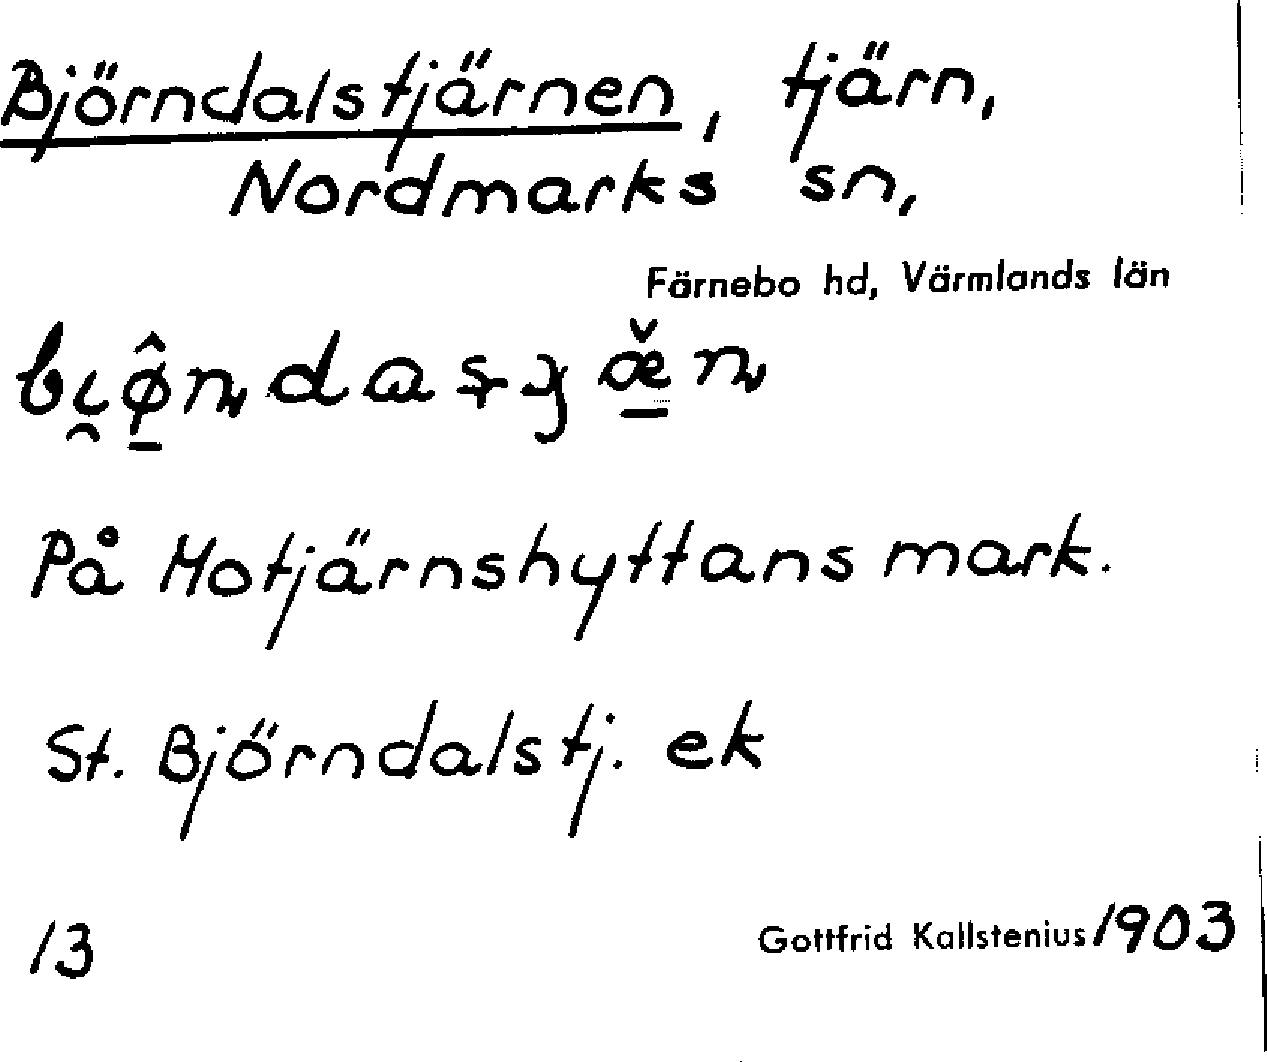 Björndalstjärnen, tjärn,
Nordmarks sn,
Färnebo hd, Värmlands län
På Motjärnshyttans mark.
St. Björndalstj. ek
13
Gottfrid Kallstenius 1903